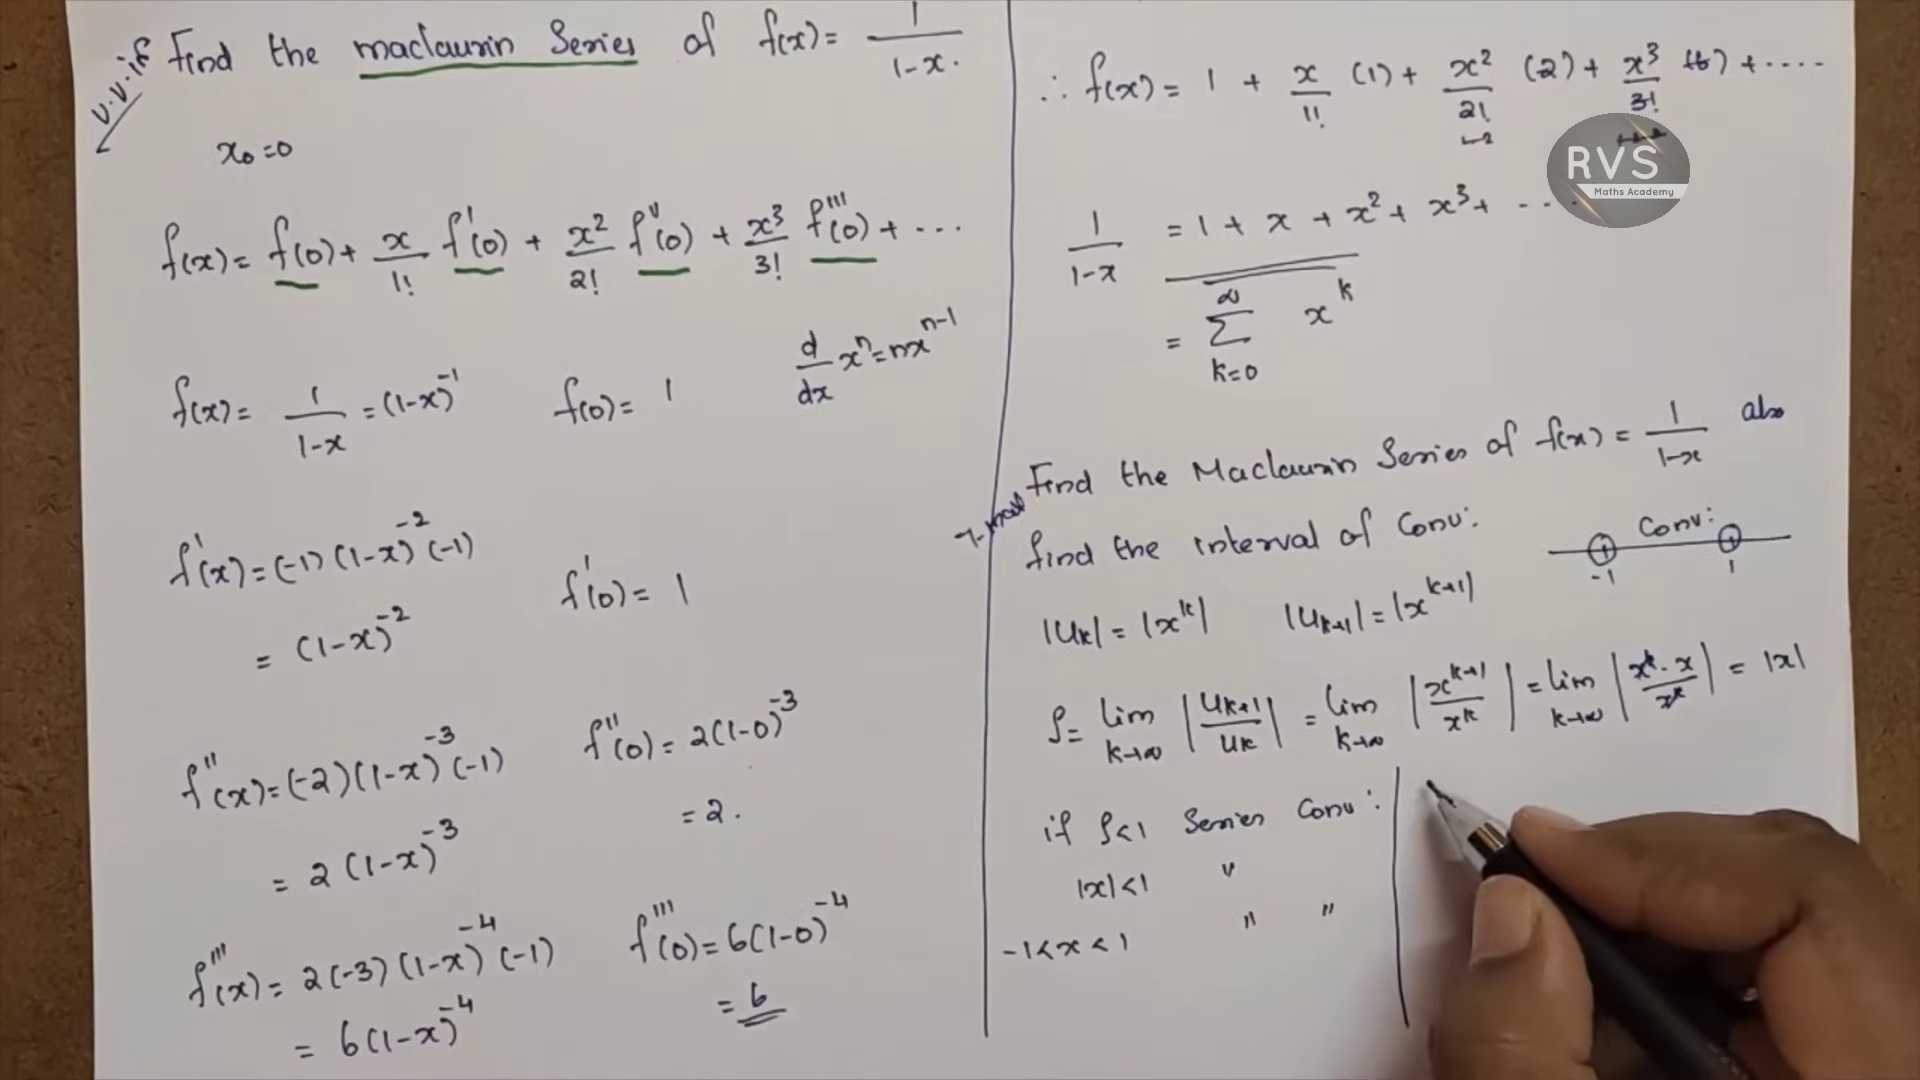 v.v.if Find the maclaurin Series of f(x) = 1/(1-x).
x₀=0
f(x) = f(0) + x/1! f'(0) + x²/2! f''(0) + x³/3! f'''(0) + ...
d/dx xⁿ = nxⁿ⁻¹
f(x) = 1/(1-x) = (1-x)⁻¹ f(0) = 1
f'(x) = (-1)(1-x)⁻²(-1) f'(0) = 1
= (1-x)⁻²
f''(x) = (-2)(1-x)⁻³(-1) f''(0) = 2(1-0)⁻³
= 2(1-x)⁻³ = 2.
f'''(x) = 2(-3)(1-x)⁻⁴(-1) f'''(0) = 6(1-0)⁻⁴
= 6(1-x)⁻⁴ = 6
∴ f(x) = 1 + x/1! (1) + x²/2! (2) + x³/3! (6) + ....
RVS
Maths Academy
1/(1-x) = 1 + x + x² + x³ + ...
= ∑_{k=0}^{∞} x^k
7-mark Find the Maclaurin Series of f(x) = 1/(1-x) also
find the interval of Conv:
Conv:
-1 1
|U_k| = |x^k| |U_{k+1}| = |x^{k+1}|
ρ = lim_{k→∞} |U_{k+1}/U_k| = lim_{k→∞} |x^{k+1}/x^k| = lim_{k→∞} |x^k · x/x^k| = |x|
if ρ<1 Series Conv:
|x|<1 "
-1<x<1 " "